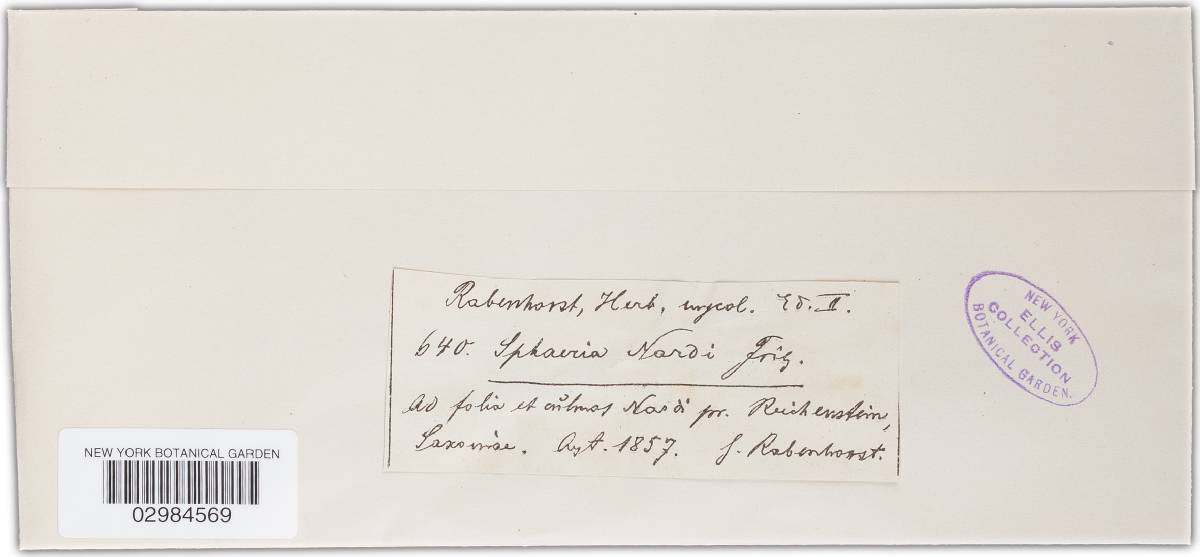 Rabenhorst, Herb. mycol. Ed. II.
640. Sphaeria Nardi Friẽs.
Ad folia et culmos Nardi pr. Reichenstein,
Saxoniae. Aut. 1857. G. Rabenhorst.
NEW YORK
ELLIS
COLLECTION
BOTANICAL GARDEN.
NEW YORK BOTANICAL GARDEN
02984569